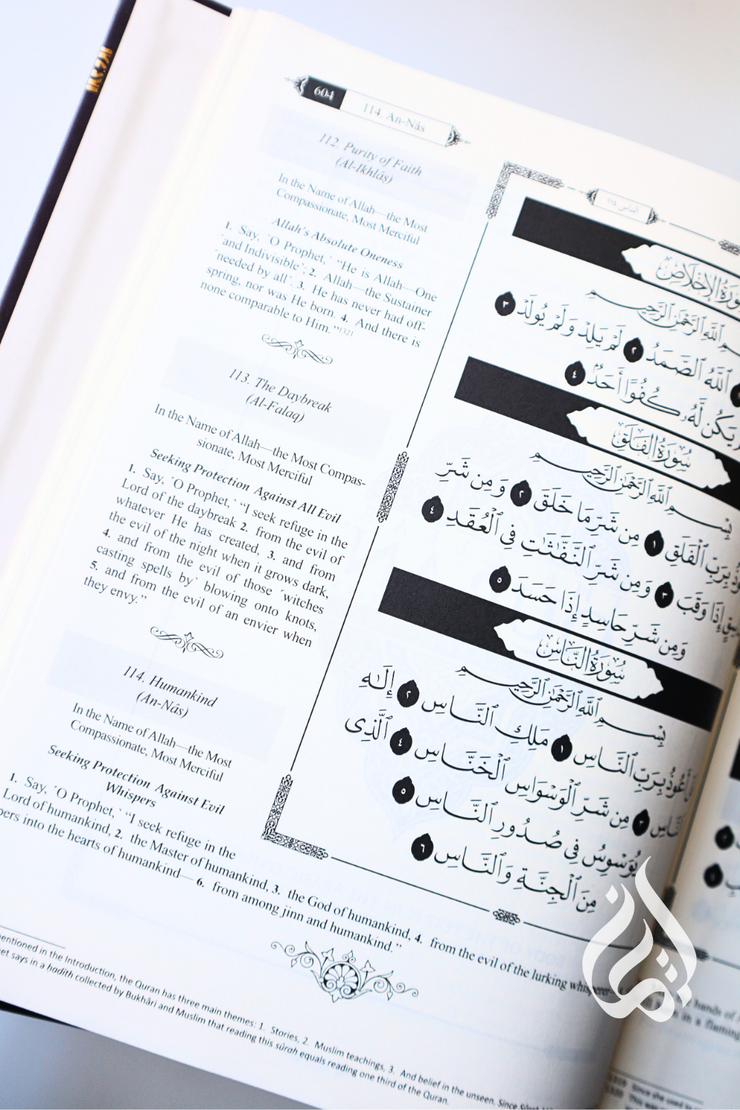 604
114. An-Nâs
112. Purity of Faith
(Al-Ikhlâṣ)
In the Name of Allah—the Most
Compassionate, Most Merciful
Allah's Absolute Oneness
1. Say, ˹O Prophet,˺ “He is Allah—One
˹and Indivisible˺; 2. Allah—the Sustainer
˹needed by all˺. 3. He has never had off-
spring, nor was He born. 4. And there is
none comparable to Him.”¹³²¹
113. The Daybreak
(Al-Falaq)
In the Name of Allah—the Most Compas-
sionate, Most Merciful
Seeking Protection Against All Evil
1. Say, ˹O Prophet,˺ “I seek refuge in the
Lord of the daybreak 2. from the evil of
whatever He has created, 3. and from
the evil of the night when it grows dark,
4. and from the evil of those ˹witches
casting spells by˺ blowing onto knots,
5. and from the evil of an envier when
they envy.”
114. Humankind
(An-Nâs)
In the Name of Allah—the Most
Compassionate, Most Merciful
Seeking Protection Against Evil
Whispers
1. Say, ˹O Prophet,˺ “I seek refuge in the
Lord of humankind, 2. the Master of humankind, 3. the God of humankind, 4. from the evil of the lurking
into the hearts of humankind— 6. from among jinn and humankind.”
in the Introduction, the Quran has three main themes: 1. Stories, 2. Muslim teachings, 3. And belief in the unseen. Since
says in a ḥadîth collected by Bukhâri and Muslim that reading this sûrah equals reading one third of the Quran.
الناس ١١٤
سُورَةُ الإِخْلَاصِ
ٱللَّهِ ٱلرَّحْمَٰنِ ٱلرَّحِيمِ
ٱللَّهُ ٱلصَّمَدُ ٢ لَمْ يَلِدْ وَلَمْ يُولَدْ ٣
يَكُن لَّهُۥ كُفُوًا أَحَدٌۢ ٤
سُورَةُ الْفَلَقِ
بِسْمِ ٱللَّهِ ٱلرَّحْمَٰنِ ٱلرَّحِيمِ
بِرَبِّ ٱلْفَلَقِ ١ مِن شَرِّ مَا خَلَقَ ٢ وَمِن شَرِّ
إِذَا وَقَبَ ٣ وَمِن شَرِّ ٱلنَّفَّٰثَٰتِ فِى ٱلْعُقَدِ ٤
وَمِن شَرِّ حَاسِدٍ إِذَا حَسَدَ ٥
سُورَةُ النَّاسِ
بِسْمِ ٱللَّهِ ٱلرَّحْمَٰنِ ٱلرَّحِيمِ
أَعُوذُ بِرَبِّ ٱلنَّاسِ ١ مَلِكِ ٱلنَّاسِ ٢ إِلَٰهِ
ٱلنَّاسِ ٣ مِن شَرِّ ٱلْوَسْوَاسِ ٱلْخَنَّاسِ ٤ ٱلَّذِى
يُوَسْوِسُ فِى صُدُورِ ٱلنَّاسِ ٥
مِنَ ٱلْجِنَّةِ وَٱلنَّاسِ ٦